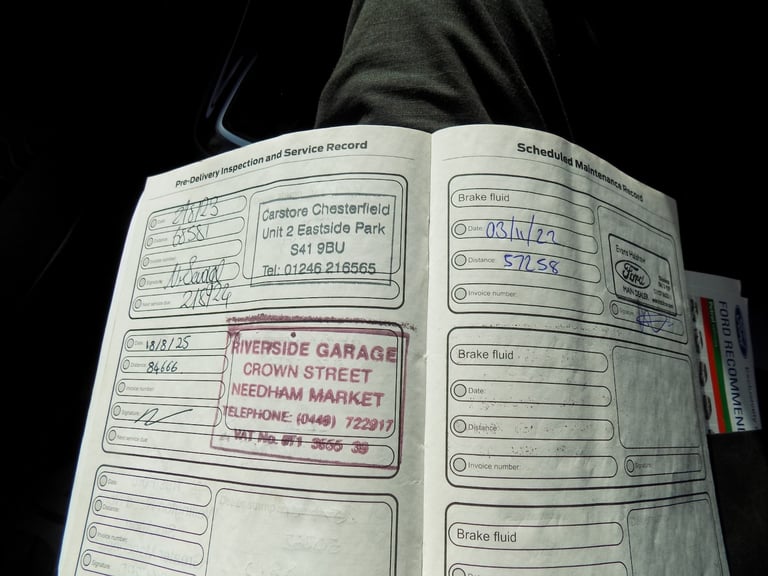 Pre-Delivery Inspection and Service Record
Date: 2/8/23
Distance:
Invoice number:
Signature:
Next service due: 2/8/24
Carstore Chesterfield
Unit 2 Eastside Park
S41 9BU
Tel: 01246 216565
Date: 18/8/25
Distance: 84666
Invoice number:
Signature:
Next service due:
RIVERSIDE GARAGE
CROWN STREET
NEEDHAM MARKET
TELEPHONE: (0449) 722917
VAT No.
Date:
Distance:
Invoice number:
Signature:
Scheduled Maintenance Record
Brake fluid
Date: 03/11/22
Distance: 57258
Invoice number:
Evans Halshaw
Ford
MAIN DEALER
Signature:
Brake fluid
Date:
Distance:
Invoice number:
Signature:
Brake fluid
FORD RECOMMEN